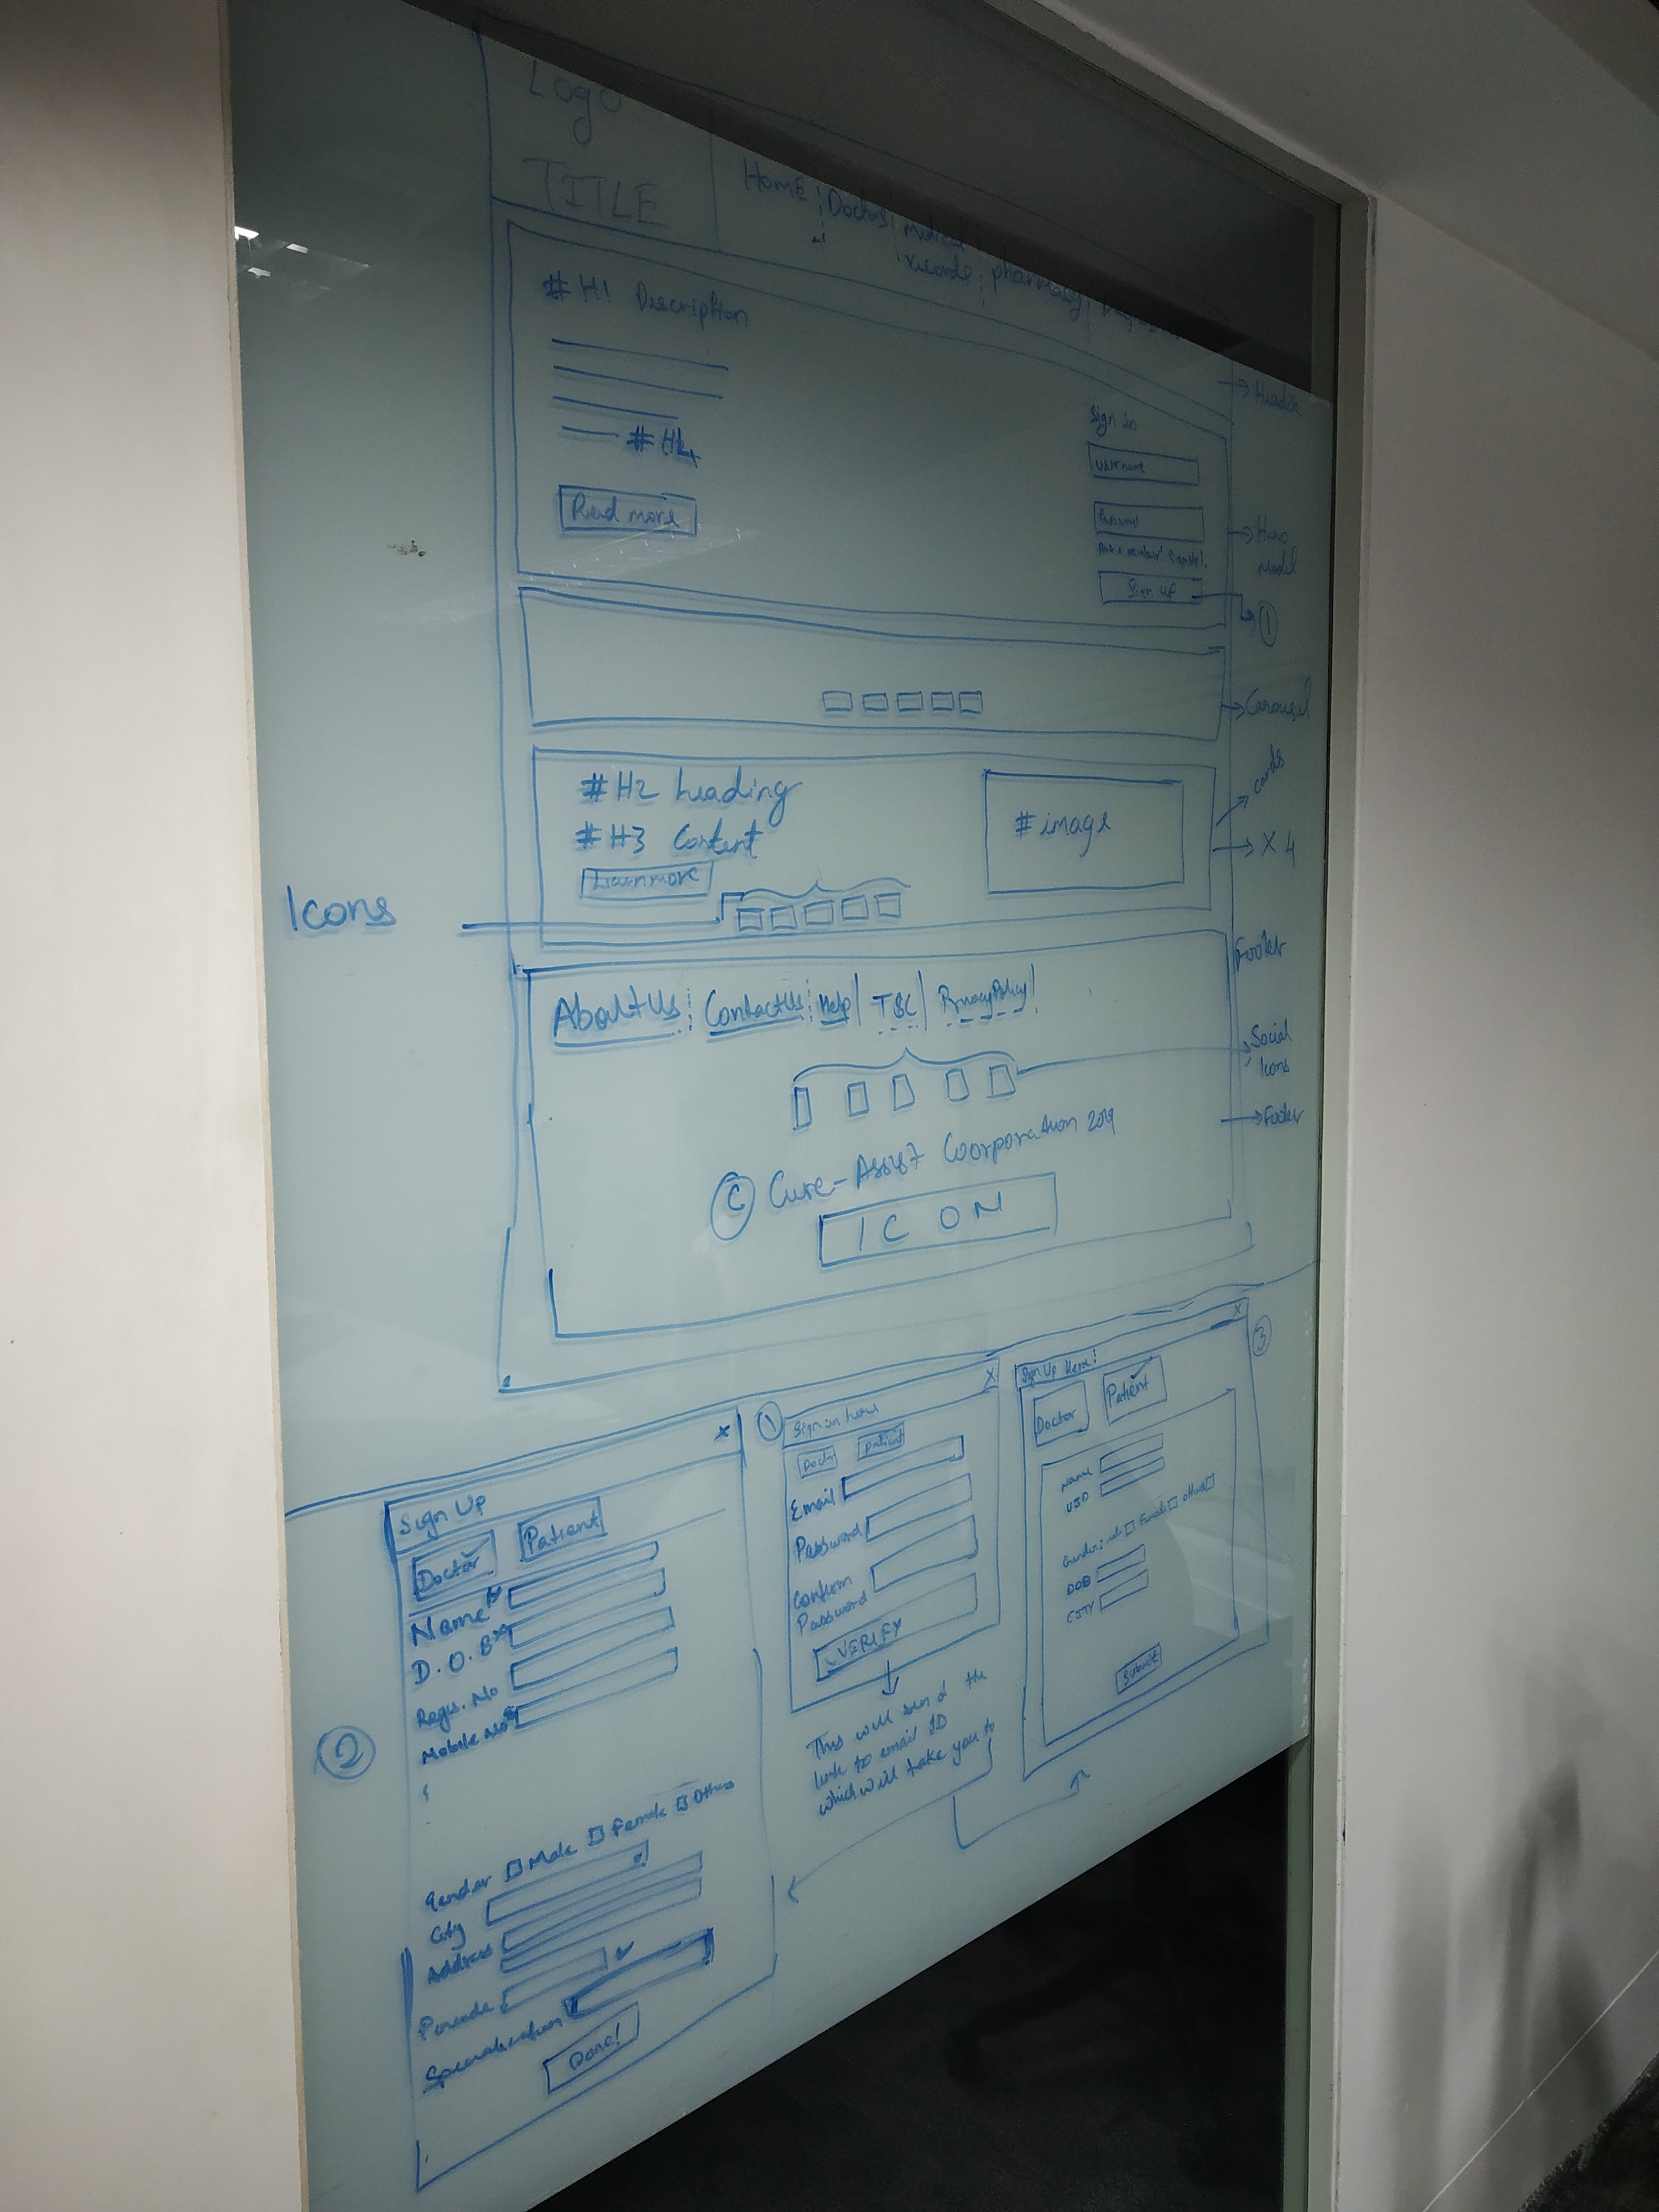 Logo
TITLE
Home Doctors medical records pharmacy
# H1 Description
# H4
Read more
Sign in
Username
Password
Not a member? Sign Up!
Sign up
→ Header
→ Hero Model
→ ①
→ Carousel
# H2 heading
# H3 Content
Learn more
# image
cards
→ X 4
Icons
Footer
About Us Contact Us Help T&C Privacy Policy
Social Icons
→ Footer
© Cure-Assist Coorporation 2019
ICON
②
Sign Up
x
Doctor Patient
Name*
D.O.B*
Regis. No
Mobile No*
Gender Male Female Others
City
Address
Pincode
Specialization
Done!
①
Sign in here
x
Doctor Patient
Email
Password
Confirm
Password
VERIFY
This will send the
link to email ID
which will take you to
③
Sign Up Here!
x
Doctor Patient
Name
Gender: male Female others
DOB
CITY
Submit